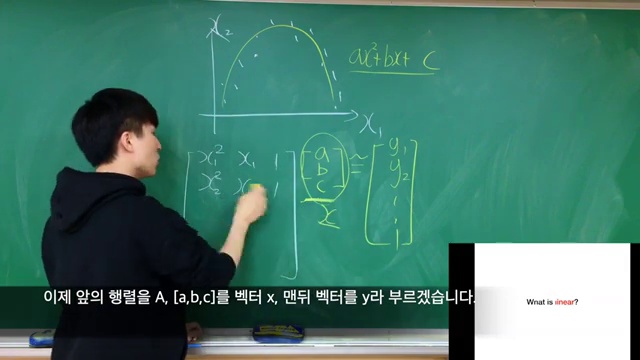 x₂
ax²+bx+ c
x₁
x₁² x₁ 1
x₂² x 1
a
b
c
≃
y₁
y₂
x
이제 앞의 행렬을 A, [a,b,c]를 벡터 x, 맨뒤 벡터를 y라 부르겠습니다.
What is linear?